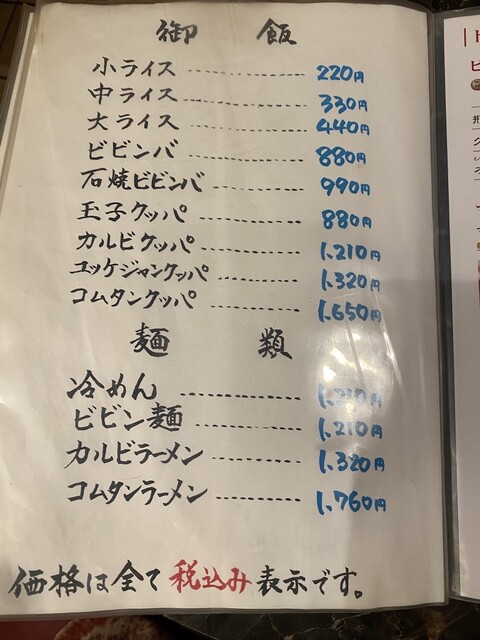 御飯
小ライス 220円
中ライス 330円
大ライス 440円
ビビンバ 880円
石焼ビビンバ 990円
玉子クッパ 880円
カルビクッパ 1,210円
ユッケジャンクッパ 1,320円
コムタンクッパ 1,650円
麺類
冷めん 1,210円
ビビン麺 1,210円
カルビラーメン 1,320円
コムタンラーメン 1,760円
価格は全て税込み表示です。